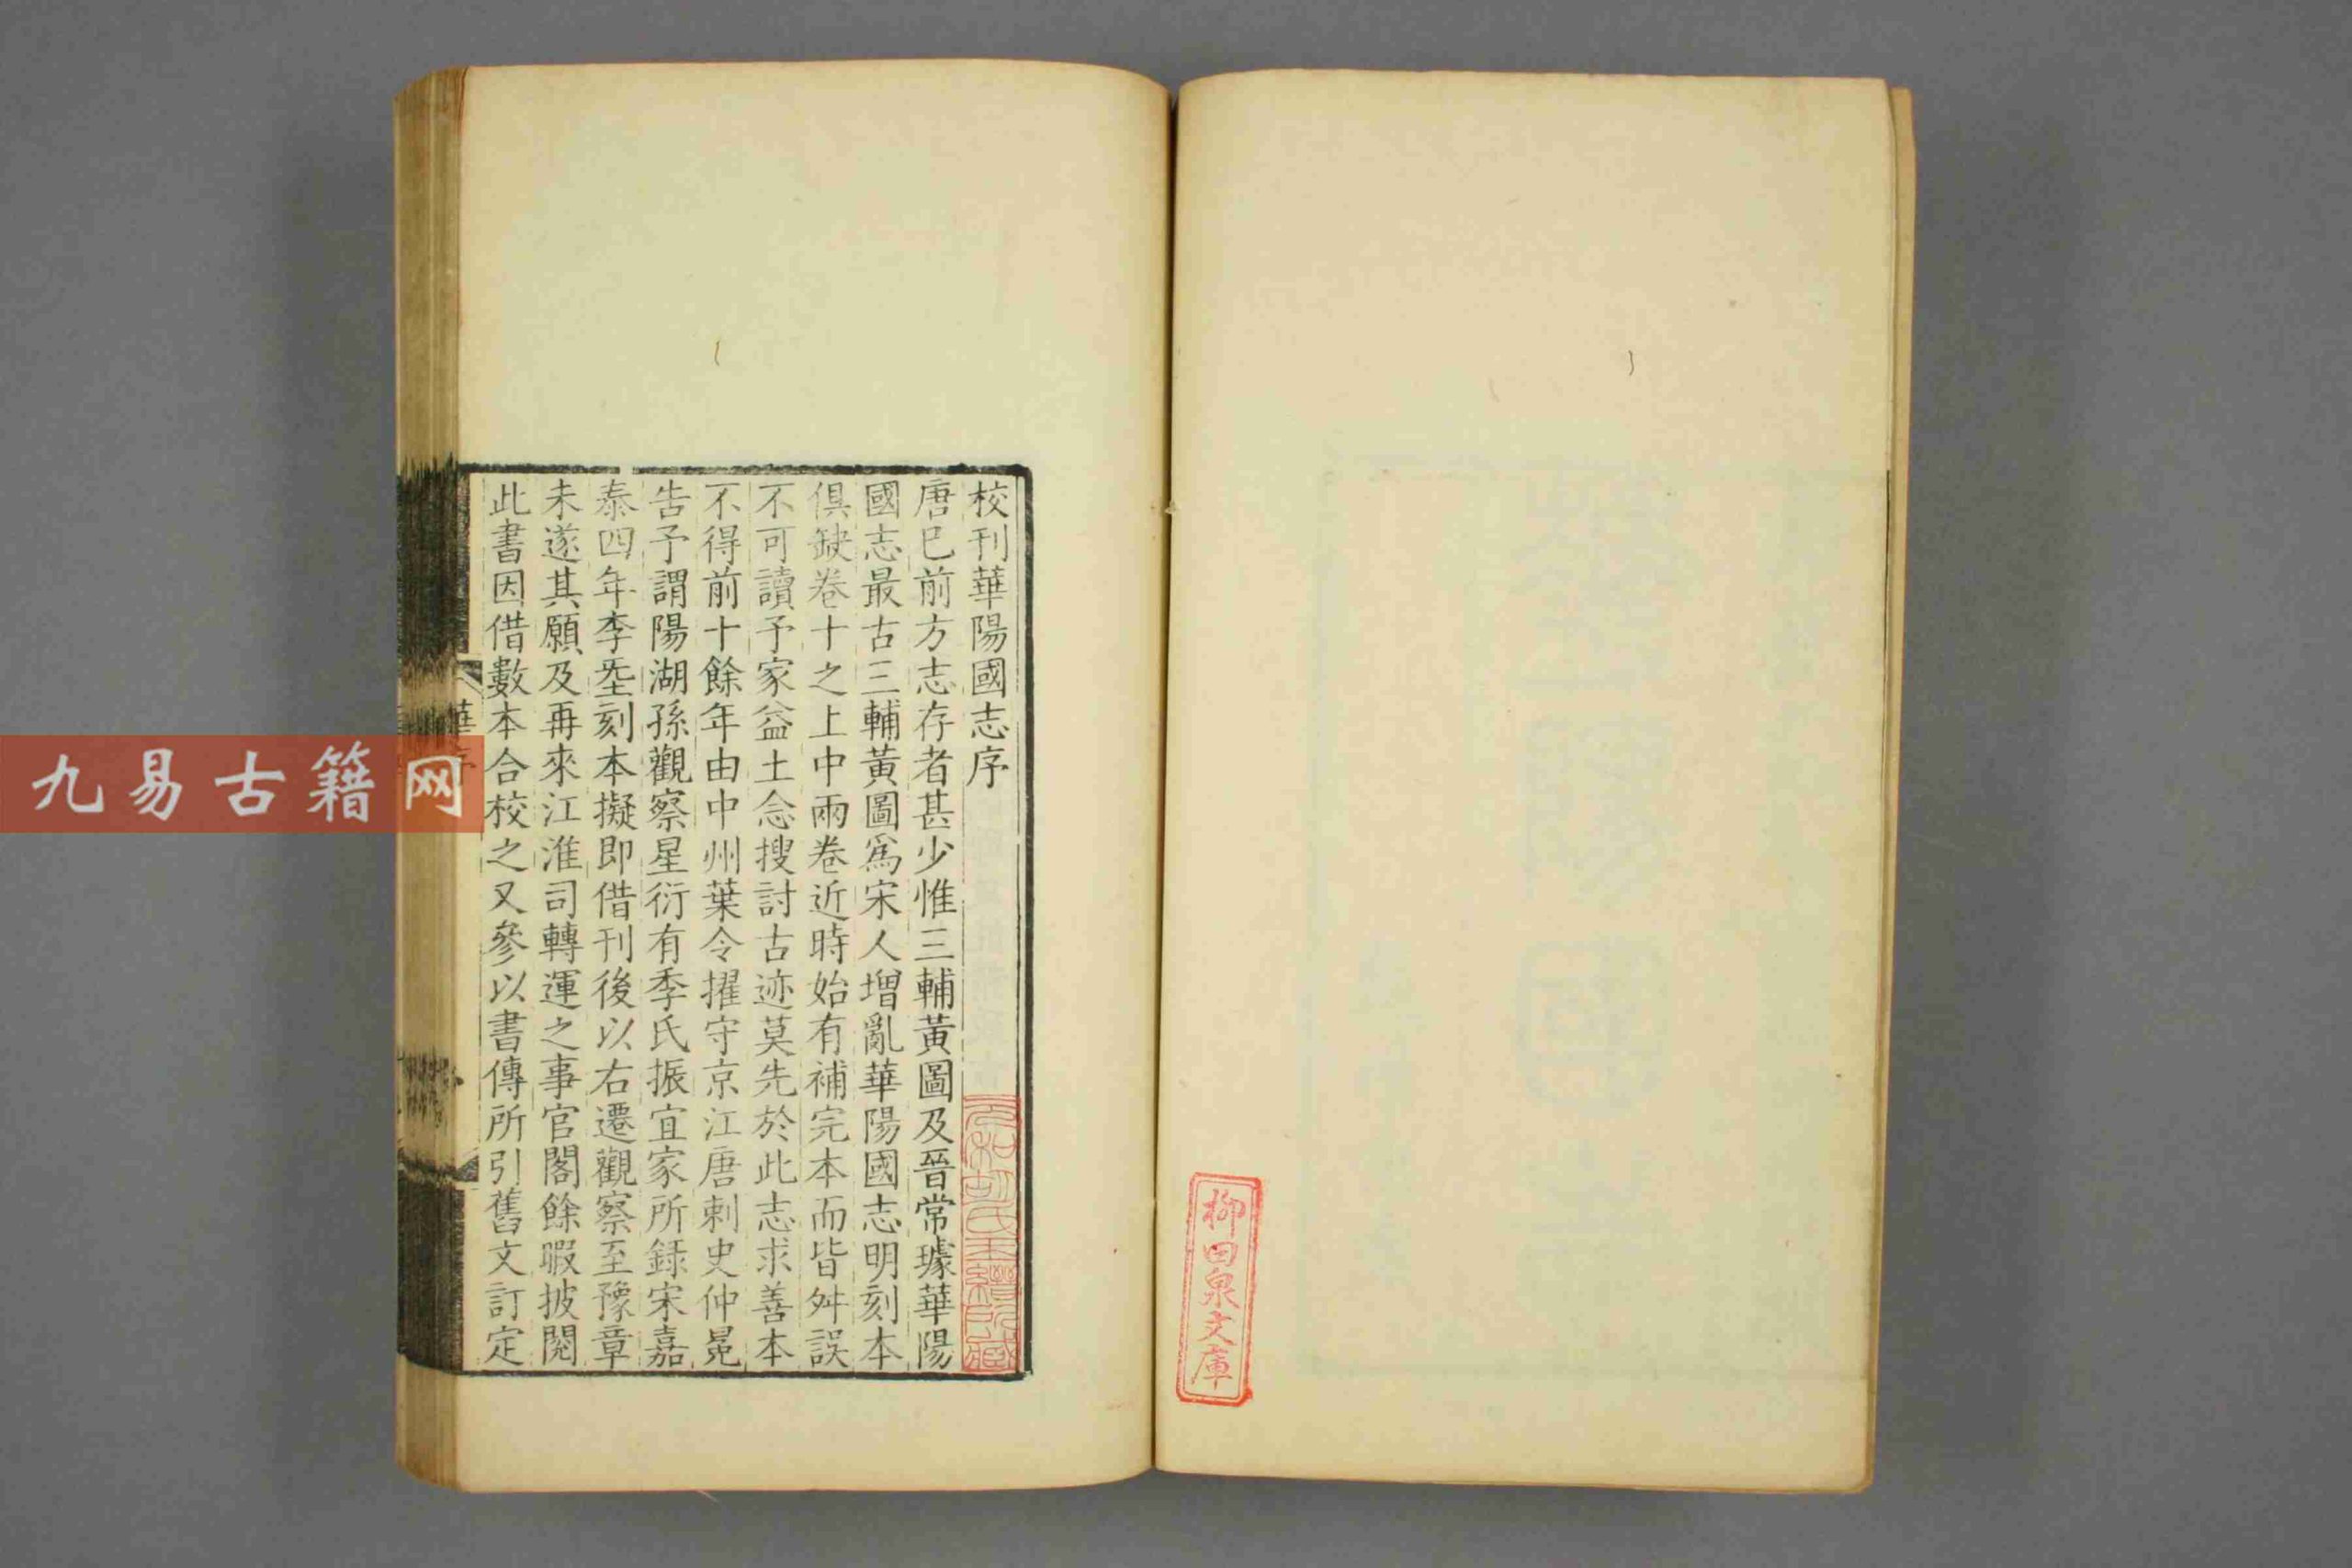 校刊華陽國志序
唐已前方志存者甚少惟三輔黃圖及晉常璩華陽
國志最古三輔黃圖爲宋人增亂華陽國志明刻本
俱缺卷十之上中兩卷近時始有補完本而皆舛誤
不可讀予家益土念搜討古迹莫先於此志求善本
不得前十餘年由中州葉令擢守京江唐刺史仲冕
告予謂陽湖孫觀察星衍有季氏振宜家所錄宋嘉
泰四年李𡐨刻本擬即借刊後以右遷觀察至豫章
未遂其願及再來江淮司轉運之事官閣餘暇披閱
此書因借數本合校之又參以書傳所引舊文訂定
華序
柳田泉文庫
九易古籍网